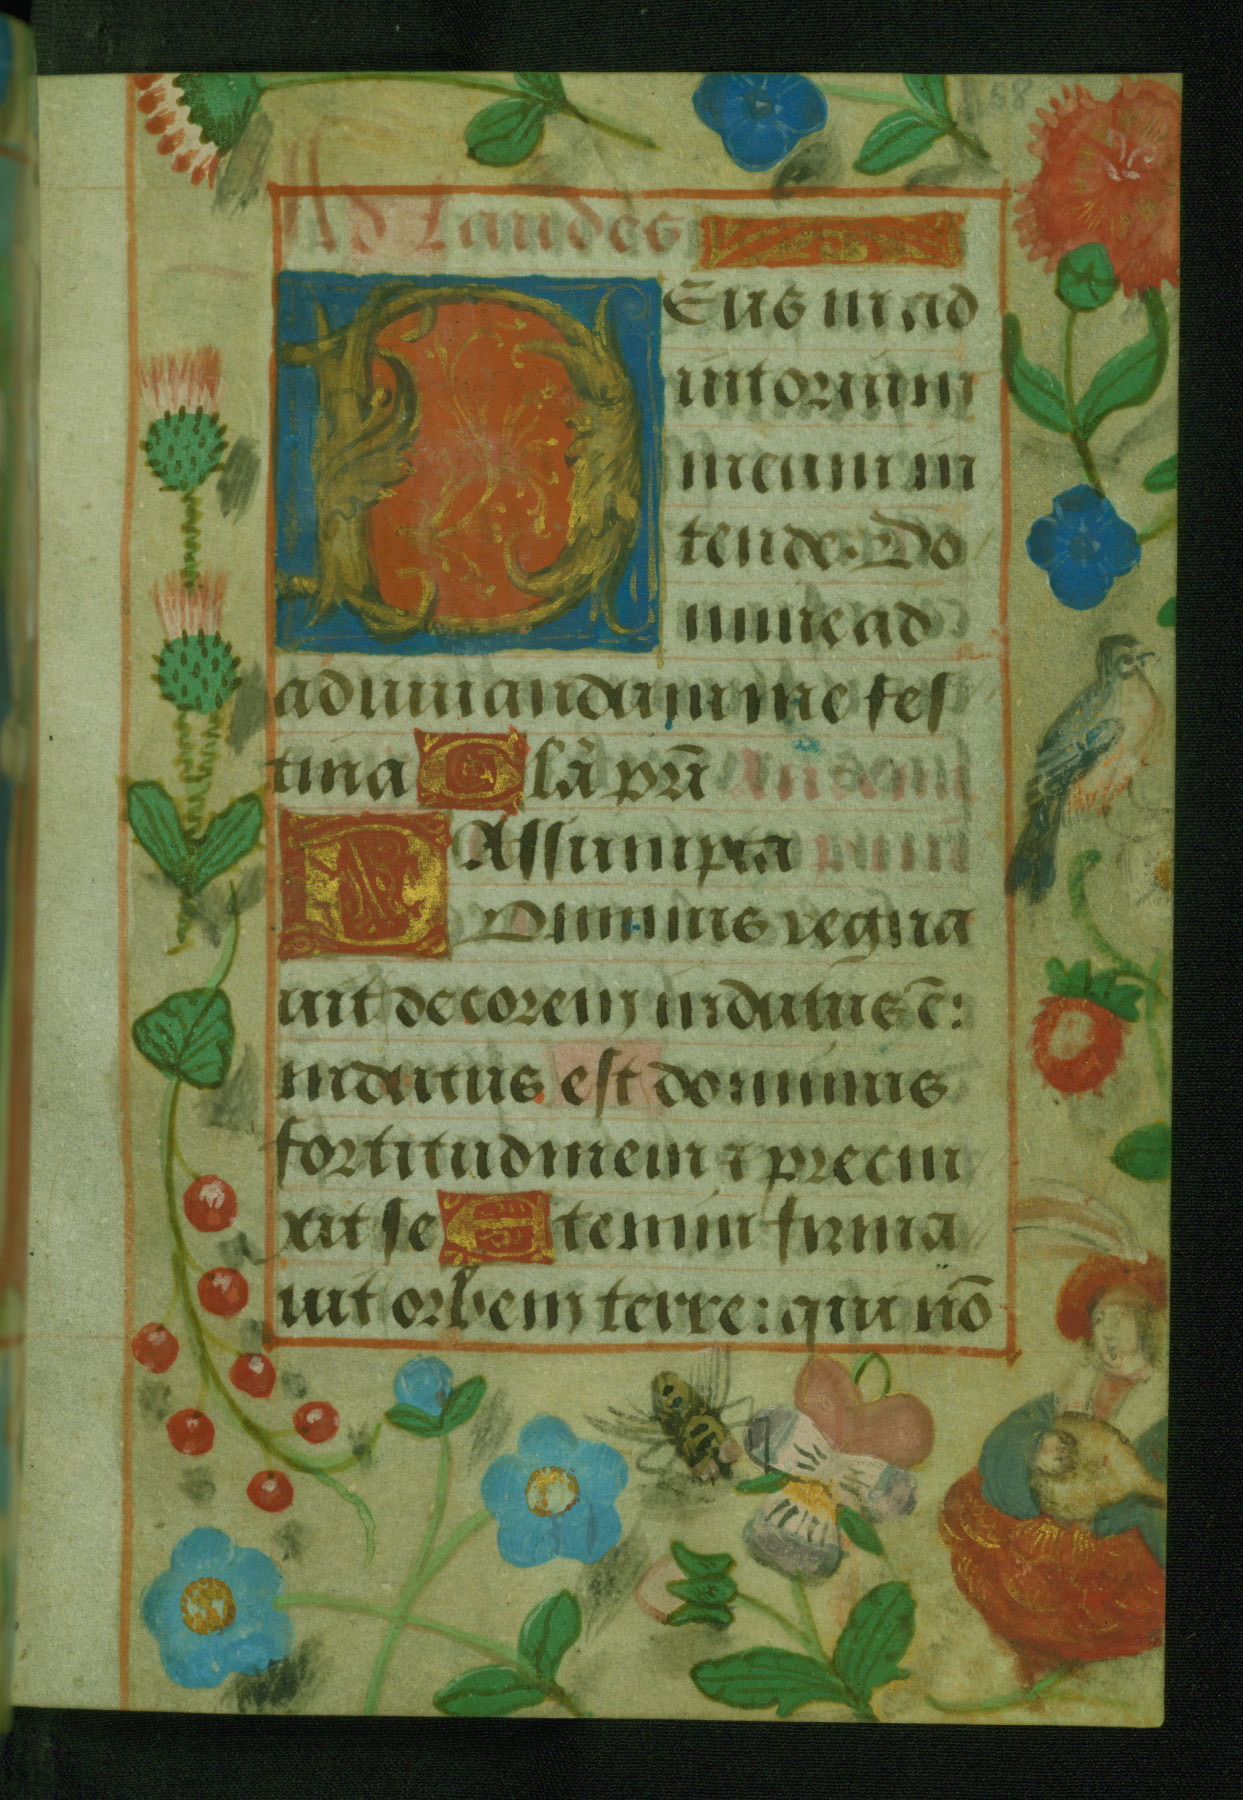 58
Ad Laudes
DEus in ad
iutorium
meum in
tende. Do
mine ad
adiuuandum me fes
tina Glã prĩ Antem
DAssumpta
Dominus regna
uit decorem indutus ē:
indutus est dominus
fortitudinem ⁊ precin
xit se Etenim firma
uit orbem terre: qui nō